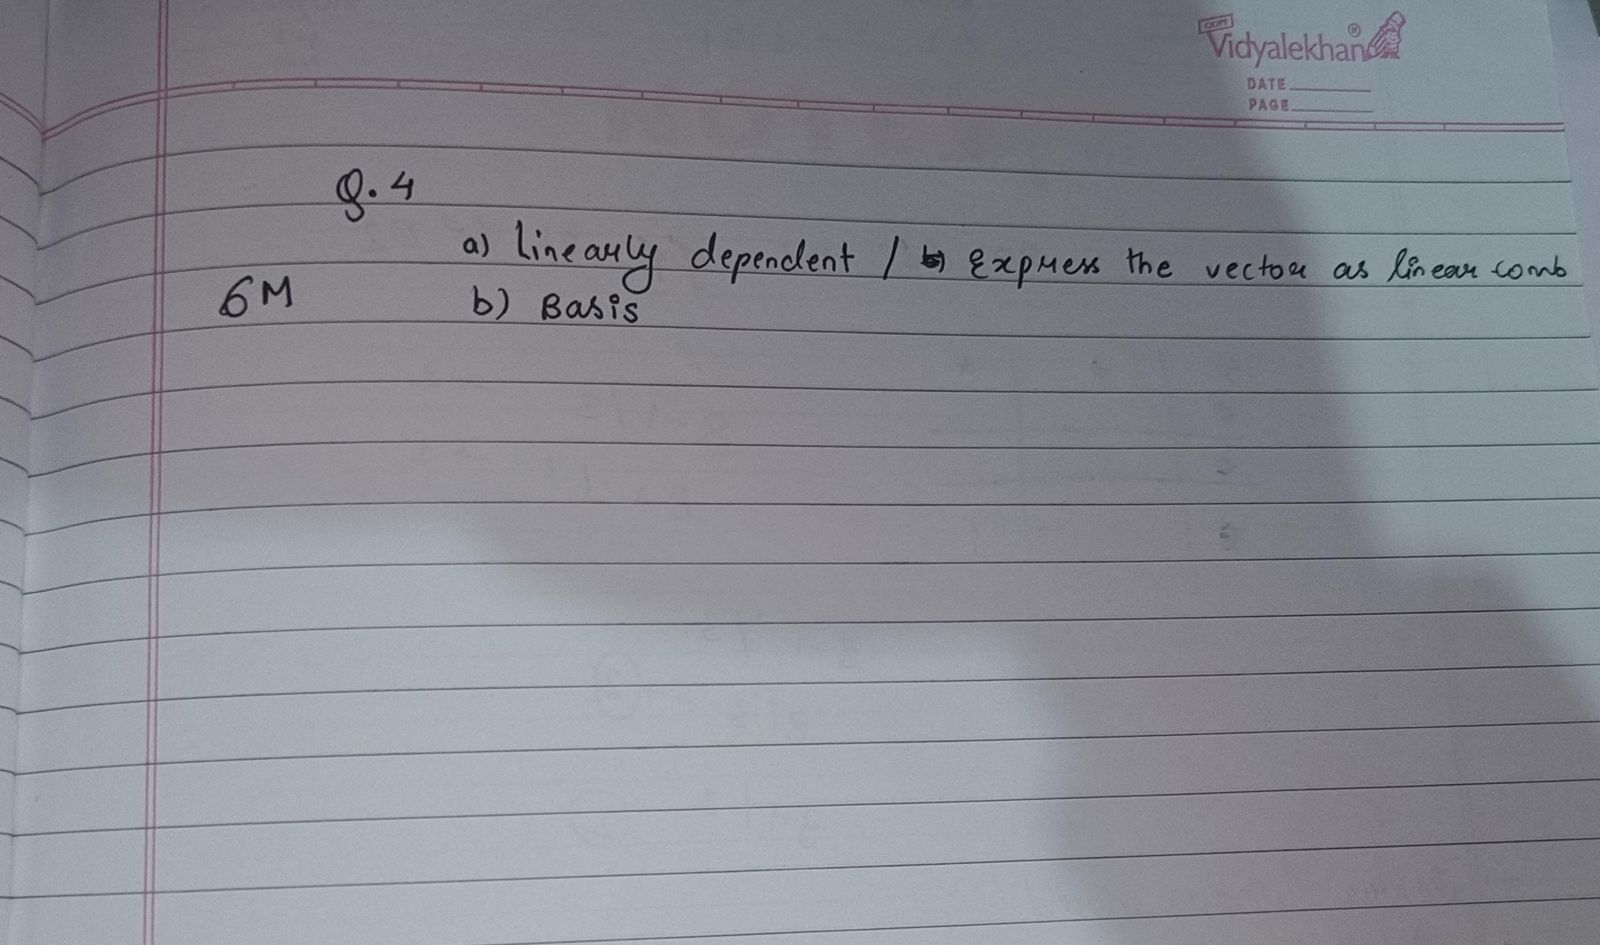 GUM
Vidyalekhan®
DATE
PAGE
Q.4
a) linearly dependent / b) Express the vector as linear comb
6M
b) Basis